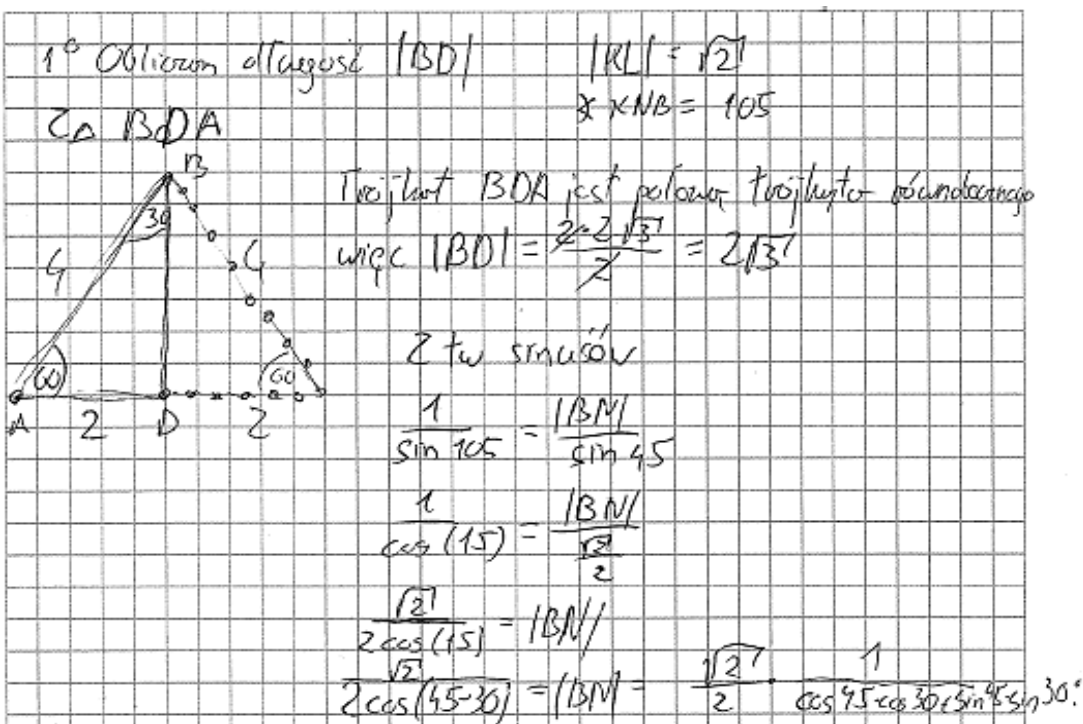 1° Obliczam długość |BD|
|KL| = √2
∡ KNB = 105
Z△ BDA
B
30
4
4
60
60
A 2 D 2
Trójkąt BDA jest połową trójkąta równobocznego
więc |BD| = 2·2√3/2 = 2√3
Z tw sinusów
1/sin 105 = |BN|/sin 45
1/cos (15) = |BN|/(√2/2)
√2/2cos(15) = |BN|
√2/2cos(45-30) = |BN| = √2/2 · 1/cos 45 cos 30 + sin 45 sin 30